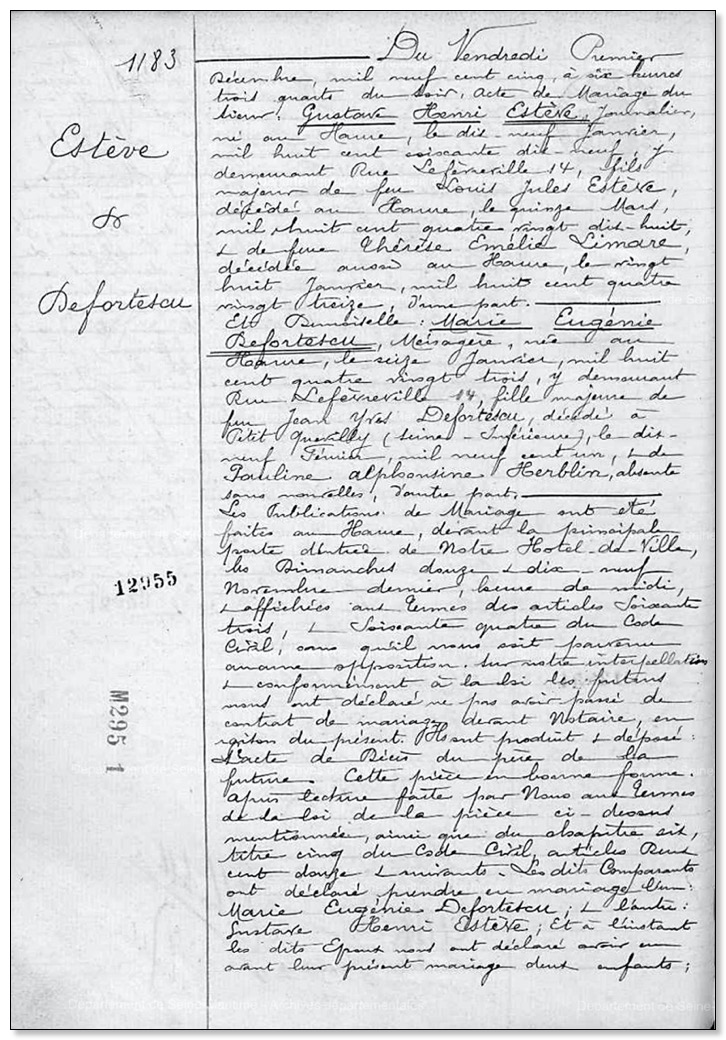 1183
Estève
&
Defortescu
12955
M295 1
Du Vendredi Premier
Décembre, mil neuf cent cinq, à six heures
trois quarts du soir. Acte de Mariage du
sieur. Gustave Henri Estève, Journalier,
né au Havre, le dix-neuf Janvier,
mil huit cent soixante dix-neuf, y
demeurant Rue Lefèvreville 14, fils
majeur de feu Louis Jules Estève,
décédé au Havre, le quinze Mars,
mil huit cent quatre vingt dix-huit,
& de feue Thérèse Emélie Limare,
décédée aussi au Havre, le vingt
huit Janvier, mil huit cent quatre
vingt treize, d'une part.
Et Demoiselle: Marie Eugénie
Defortescu, Ménagère, née au
Havre, le seize Janvier, mil huit
cent quatre vingt trois, y demeurant
Rue Lefèvreville 14, fille majeure de
feu Jean Yves Defortescu, décédé à
Petit Quevilly (Seine-Inférieure), le dix-
neuf Février, mil neuf cent un, & de
Pauline Alphonsine Herblin, absente
sans nouvelles, d'autre part.
Les Publications de Mariage ont été
faites au Havre, devant la principale
porte d'entrée de Notre Hotel-de-Ville,
les Dimanches douze & dix-neuf
Novembre dernier, heure de midi,
& affichées aux termes des articles Soixante
trois, & Soixante quatre du Code
Civil, sans qu'il nous soit parvenu
aucune opposition. Sur notre interpellation
& conformément à la loi les futurs
nous ont déclaré ne pas avoir passé de
contrat de mariage devant Notaire, en
raison du présent. Ils ont produit & déposé:
L'acte de Décès du père de la
future. Cette pièce en bonne forme.
Après lecture faite par Nous aux termes
de la loi de la pièce ci-dessus
mentionnée, ainsi que du chapitre six,
titre cinq du Code Civil, articles Deux
cent douze & suivants. Les dits Comparants
ont déclaré prendre en mariage l'un:
Marie Eugénie Defortescu; & l'autre:
Gustave Henri Estève; Et à l'instant
les dits Epoux nous ont déclaré avoir eu
avant leur présent mariage deux enfants;